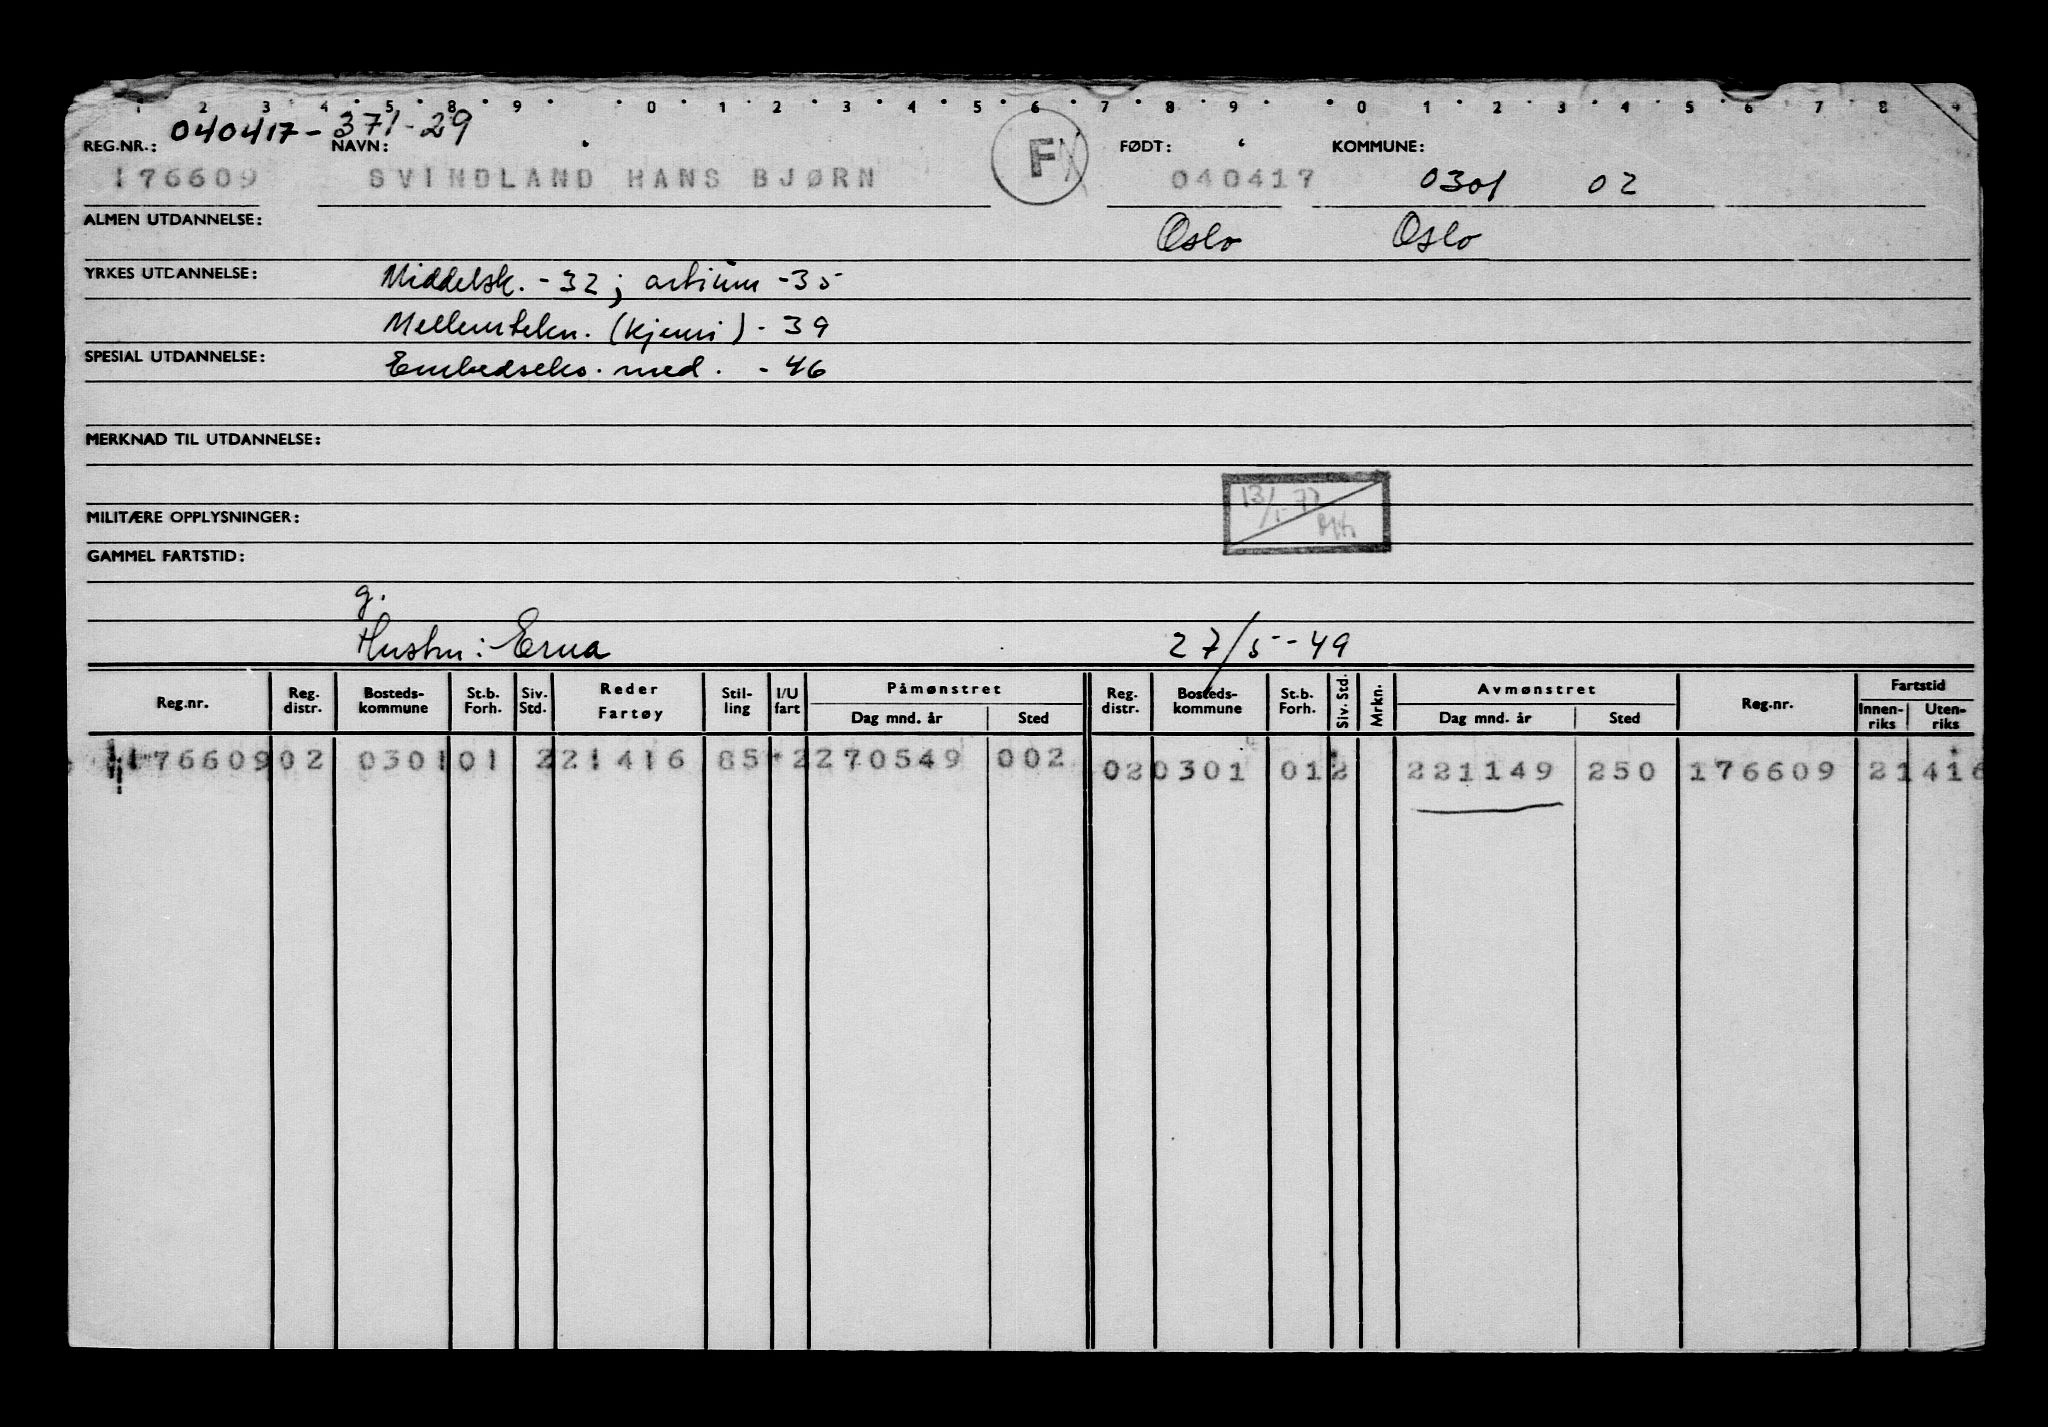 1 2 3 4 5 8 9 0 1 2 3 4 5 6 7 8 9 0 1 2 3 4 5 6 7 8 9
040417-371-29
REG.NR.: NAVN: F FØDT: KOMMUNE:
176609 SVINDLAND HANS BJØRN 040417 0301 02
ALMEN UTDANNELSE: Oslo Oslo
YRKES UTDANNELSE: Middelsk. -32; artium -35
Mellomtekn. (kjemi) - 39
SPESIAL UTDANNELSE: Embedseks. med. - 46
MERKNAD TIL UTDANNELSE:
13/1-77
MILITÆRE OPPLYSNINGER:
GAMMEL FARTSTID:
g.
Hustru: Erna 27/5-49
Reg.nr. Reg. distr. Bosteds- kommune St.b. Forh. Siv. Std. Reder Fartøy Stil- ling I/U fart Påmønstret Dag mnd. år Sted Reg. distr. Bosteds- kommune St.b. Forh. Siv. Std. Mrkn. Avmønstret Dag mnd. år Sted Reg.nr. Fartstid Innen- riks Uten- riks
176609 02 0301 01 2 21416 85 2 270549 002 02 0301 01 2 221149 250 176609 21416